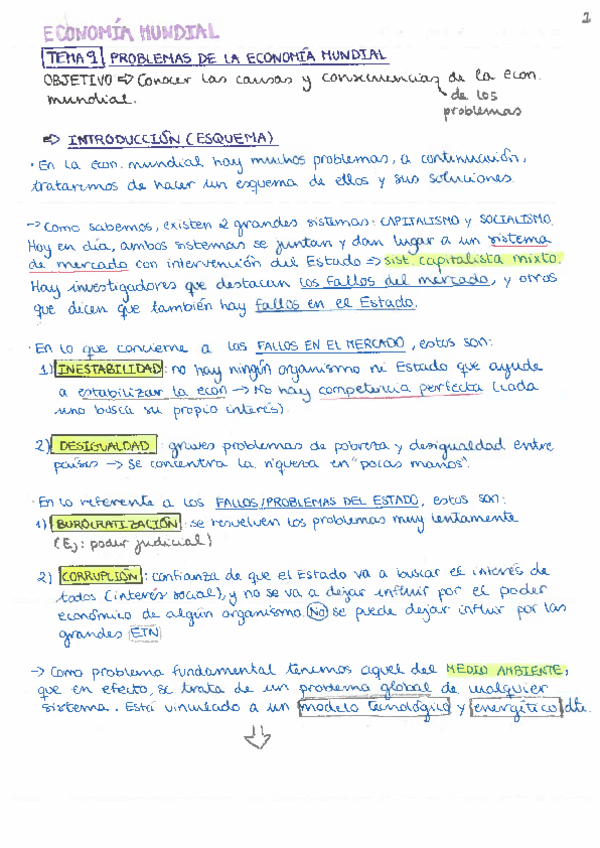 1
ECONOMÍA MUNDIAL
TEMA 9 PROBLEMAS DE LA ECONOMÍA MUNDIAL
OBJETIVO => Conocer las causas y consecuencias de la econ.
mundial.
de los
problemas
=> INTRODUCCIÓN (ESQUEMA)
· En la econ. mundial hay muchos problemas, a continuación,
trataremos de hacer un esquema de ellos y sus soluciones.
-> Como sabemos, existen 2 grandes sistemas: CAPITALISMO y SOCIALISMO.
Hoy en día, ambos sistemas se juntan y dan lugar a un sistema
de mercado con intervención del Estado => sist. capitalista mixto.
Hay investigadores que destacan los fallos del mercado, y otros
que dicen que también hay fallos en el Estado.
· En lo que concierne a los FALLOS EN EL MERCADO, estos son:
1) INESTABILIDAD: no hay ningún organismo ni Estado que ayude
a estabilizar la econ -> No hay competencia perfecta (cada
uno busca su propio interés).
2) DESIGUALDAD: graves problemas de pobreza y desigualdad entre
países -> Se concentra la riqueza en "pocas manos".
· En lo referente a los FALLOS/PROBLEMAS DEL ESTADO, estos son:
1) BUROCRATIZACIÓN: se resuelven los problemas muy lentamente
(Ej: poder judicial)
2) CORRUPCIÓN: confianza de que el Estado va a buscar el interés de
todos (interés social), y no se va a dejar influir por el poder
económico de algún organismo. No se puede dejar influir por las
grandes ETN
-> Como problema fundamental tenemos aquel del MEDIO AMBIENTE,
que en efecto, se trata de un problema global de cualquier
sistema. Está vinculado a un modelo tecnológico y energético dte.